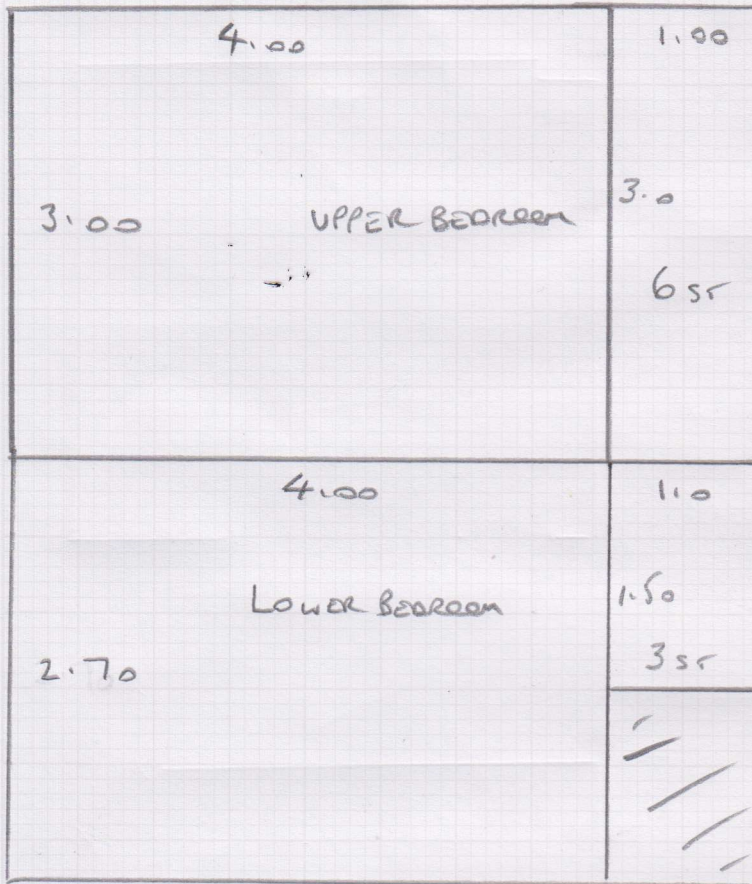 4.00
1.00
3.00
UPPER BEDROOM
3.0
6 ST
4.00
1.0
LOWER BEDROOM
1.50
2.70
3 ST